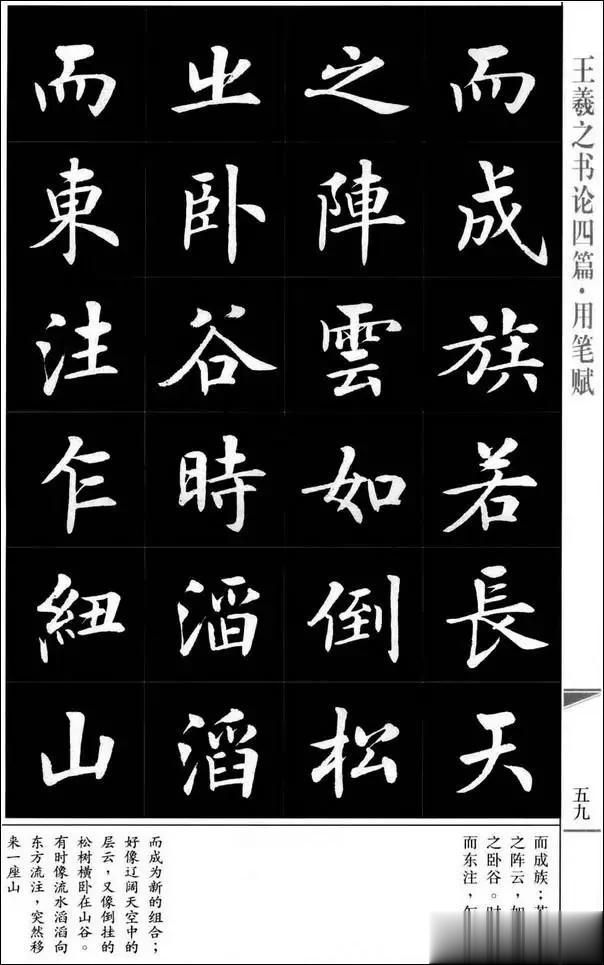 王羲之书论四篇·用笔赋
五九
而成族若長天
之陣雲如倒松
㞢卧谷時滔滔
而東注乍紐山
而成族；若
之阵云，如
之卧谷。时
而东注，乍
而成为新的组合；
好像辽阔天空中的
层云，又像倒挂的
松树横卧在山谷。
有时像流水滔滔向
东方流注，突然移
来一座山